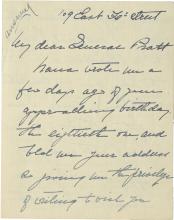 answered
109 East 36th Street
My dear General Pratt
wrote me a
few days ago of your
approaching birthday
the eightieth one, and
told me your address
so giving me the privilege
of writing to wish you